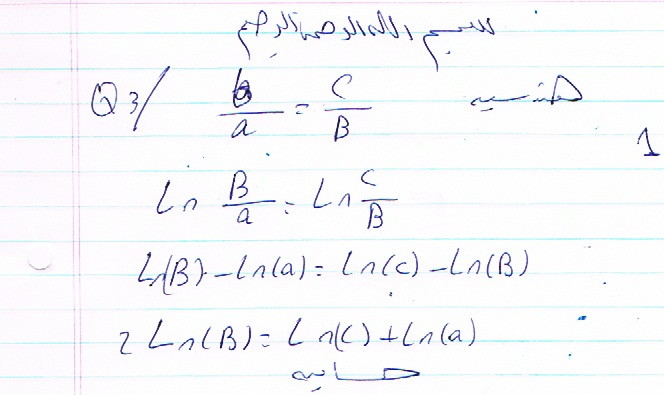 بسم الله الرحمن الرحيم
Q3/ b/a = C/B هندسيه
1
Ln B/a = Ln C/B
Ln(B) - Ln(a) = Ln(c) - Ln(B)
2 Ln(B) = Ln(C) + Ln(a)
حسابيه